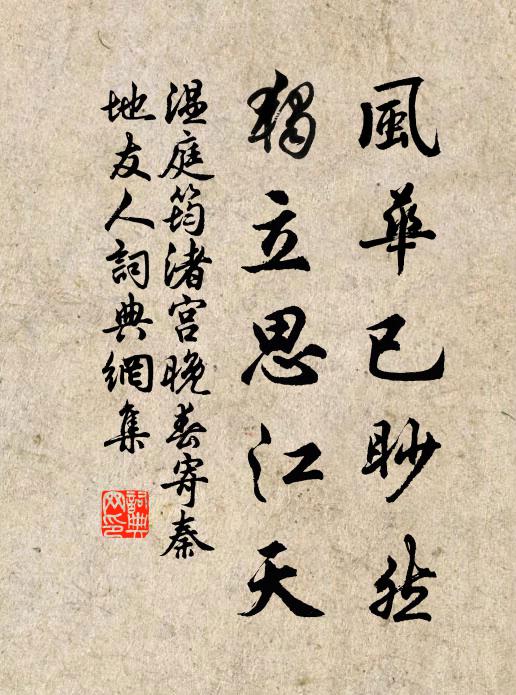 風華已眇然
獨立思江天
溫庭筠渚宮晚春寄秦
地友人詞典網集
詞典
网印